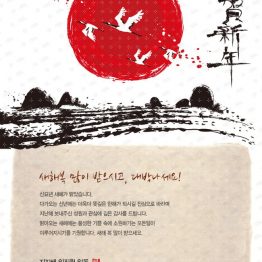 賀新年
새해복 많이 받으시고, 대박나세요!
신묘년 새해가 밝았습니다.
다가오는 신년에는 더욱더 뜻깊은 한해가 되시길 진심으로 바라며
지난해 보내주신 성원과 관심에 깊은 감사를 드립니다.
밝아오는 새해에는 풍성한 기쁨 속에 소원하시는 모든일이
이루어지시기를 기원합니다. 새해 복 많이 받으세요.